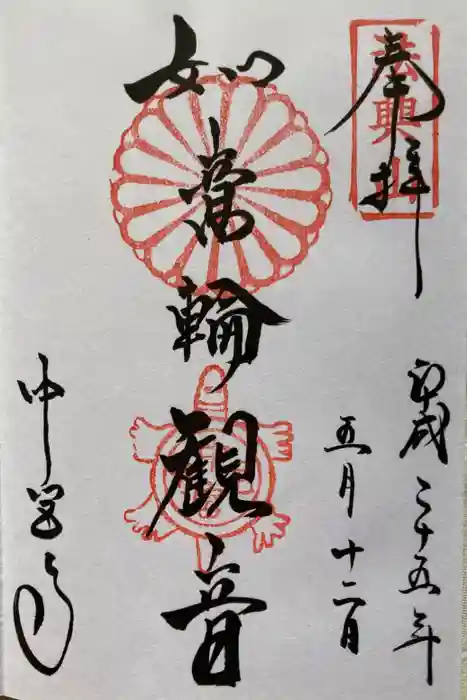 奉拝
法興山
平成二十五年
五月十二日
如意輪観音
中宮寺